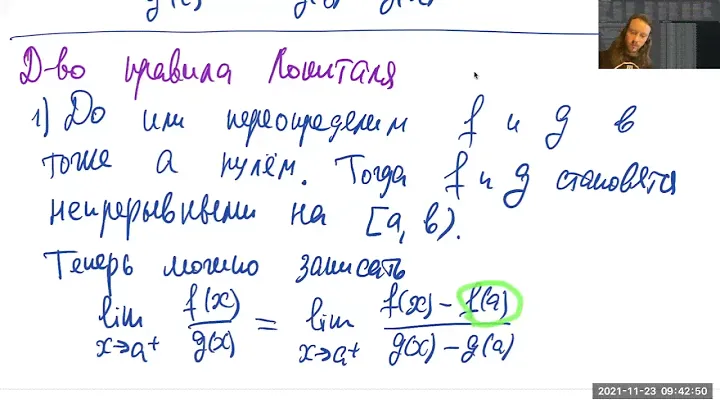 Д-во правила Лопиталя
1) До или переопределим f и g в
точке a нулём. Тогда f и g становятся
непрерывными на [a, b).
Теперь можно записать
lim x→a+ f(x)/g(x) = lim x→a+ (f(x) − f(a))/(g(x) − g(a))
2021-11-23 09:42:50